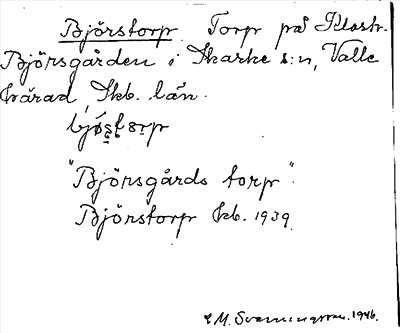 Björstorp. Torp på Klostr.
Björsgården i Skarke s:n, Valle
härad, Skb. län.
bjǿs̨t̨orp
"Björsgårds torp".
Björstorp kb. 1939.
E M. Svenningsson. 1946.